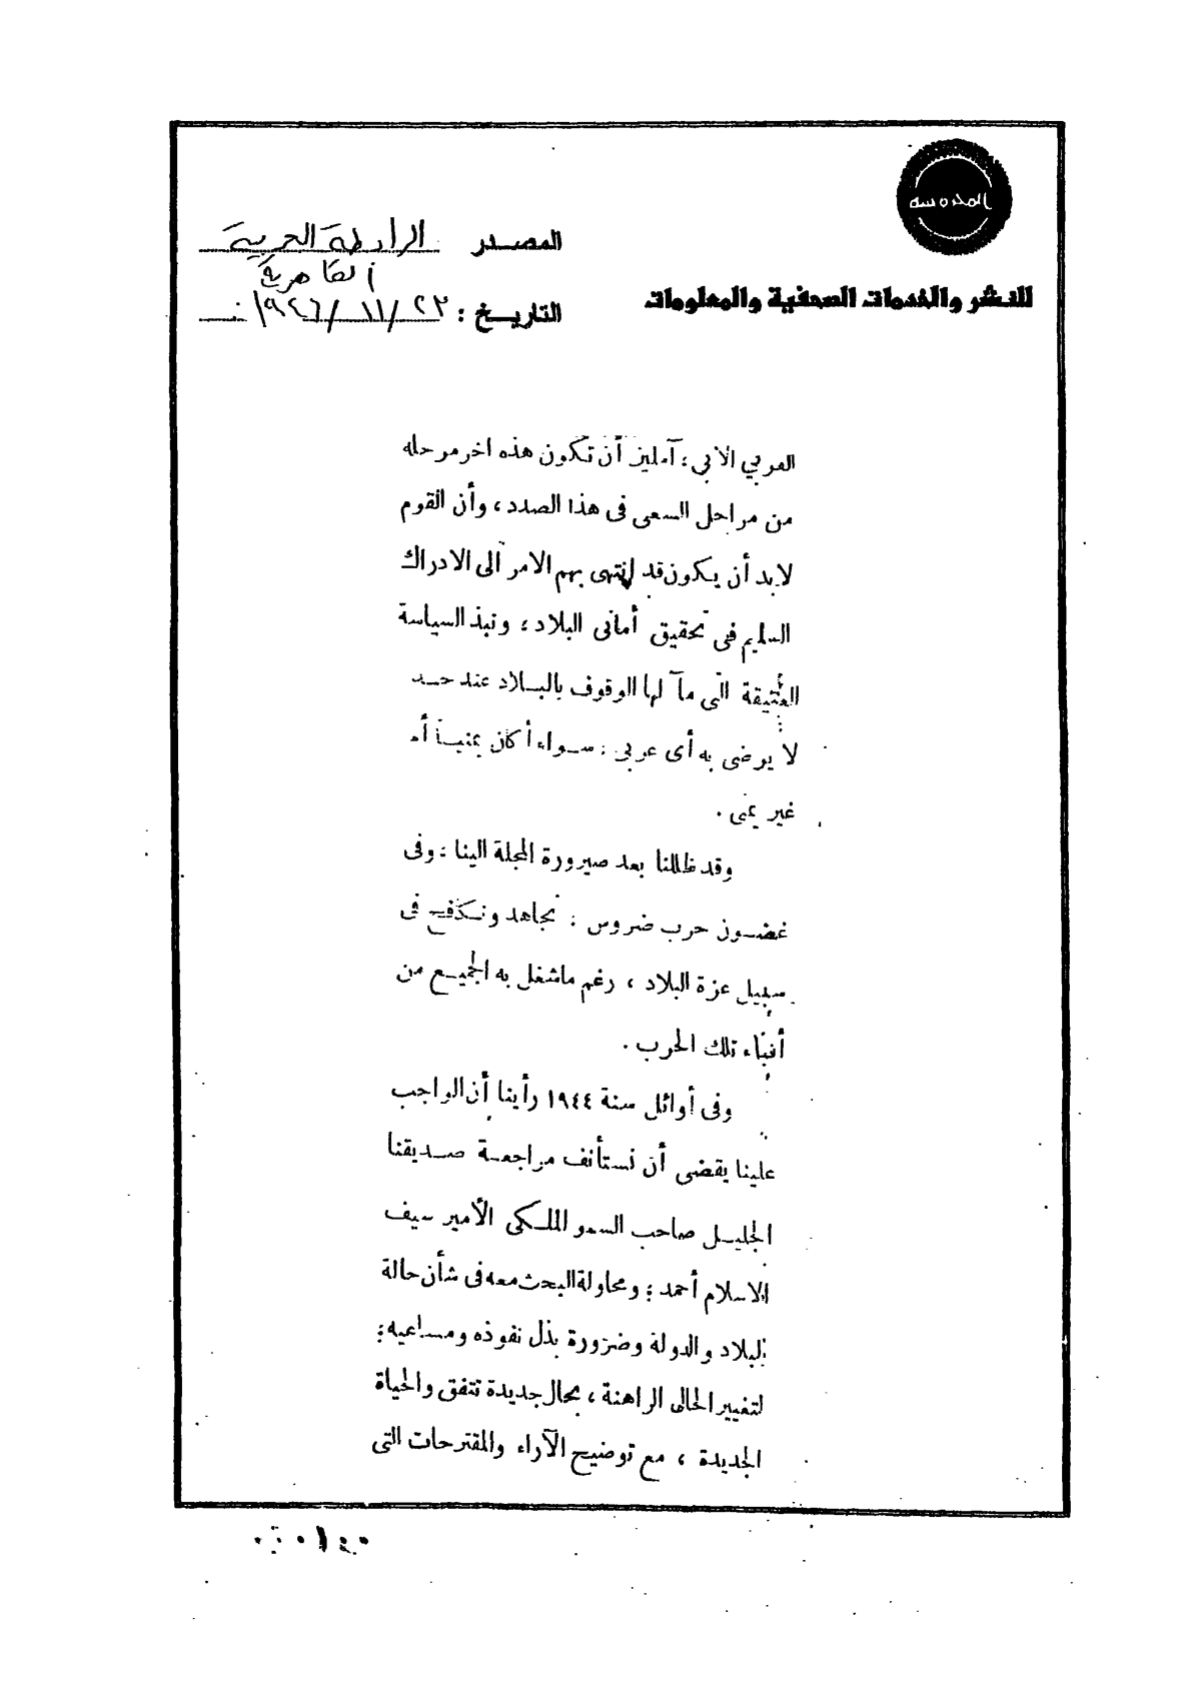 المحروسه
للنشر والخدمات الصحفية والمعلومات
المصدر الرابطة العربية
القاهرية
التاريخ : ٢٣/١١/١٩٤٦
العربي الأبي ؛ آملين أن تكون هذه اخر مرحله
من مراحل السعى فى هذا الصدد ، وأن القوم
لا بد أن يكون قد انتهى بهم الامر الى الادراك
السليم فى تحقيق أمانى البلاد ، ونبذ السياسة
العتيقة التى مآلها الوقوف بالبلاد عند حد
لا يرضى به أى عربى ؛ سواء أكان يمنيا أم
غير يمنى .
وقد ظللنا بعد صيرورة المجلة الينا ؛ وفى
غضون حرب ضروس ؛ نجاهد ونكافح فى
سبيل عزة البلاد ، رغم ماشغل به الجميع من
أنباء تلك الحرب .
وفى أوائل سنة ١٩٤٤ رأينا أن الواجب
علينا يقضى أن نستأنف مراجعة صديقنا
الجليل صاحب السمو الملكى الأمير سيف
الاسلام أحمد ؛ ومحاولة البحث معه فى شأن حالة
البلاد والدولة وضرورة بذل نفوذه ومساعيه ؛
لتغيير الحال الراهنة ، بحال جديدة تتفق والحياة
الجديدة ، مع توضيح الآراء والمقترحات التى